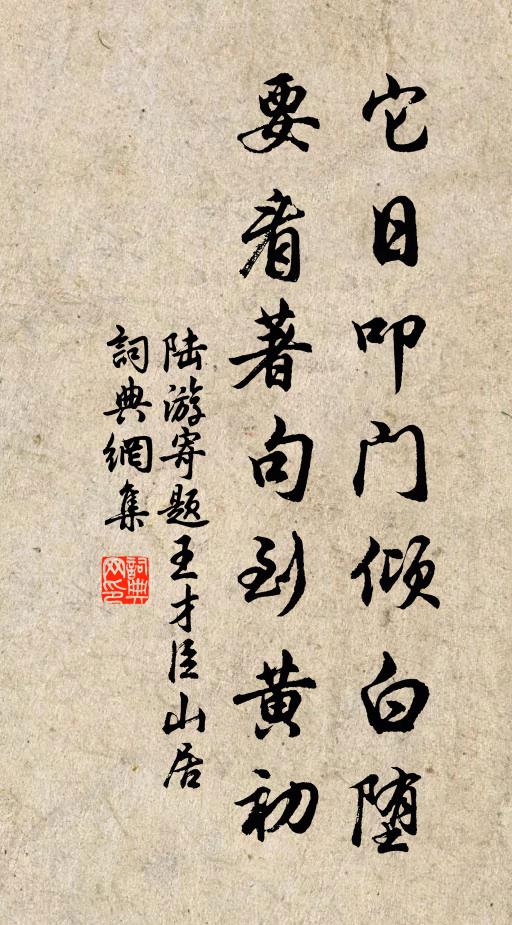 它日叩门倾白堕
要看著句到黄初
陆游寄题王才臣山居
詞典網集
詞典网印